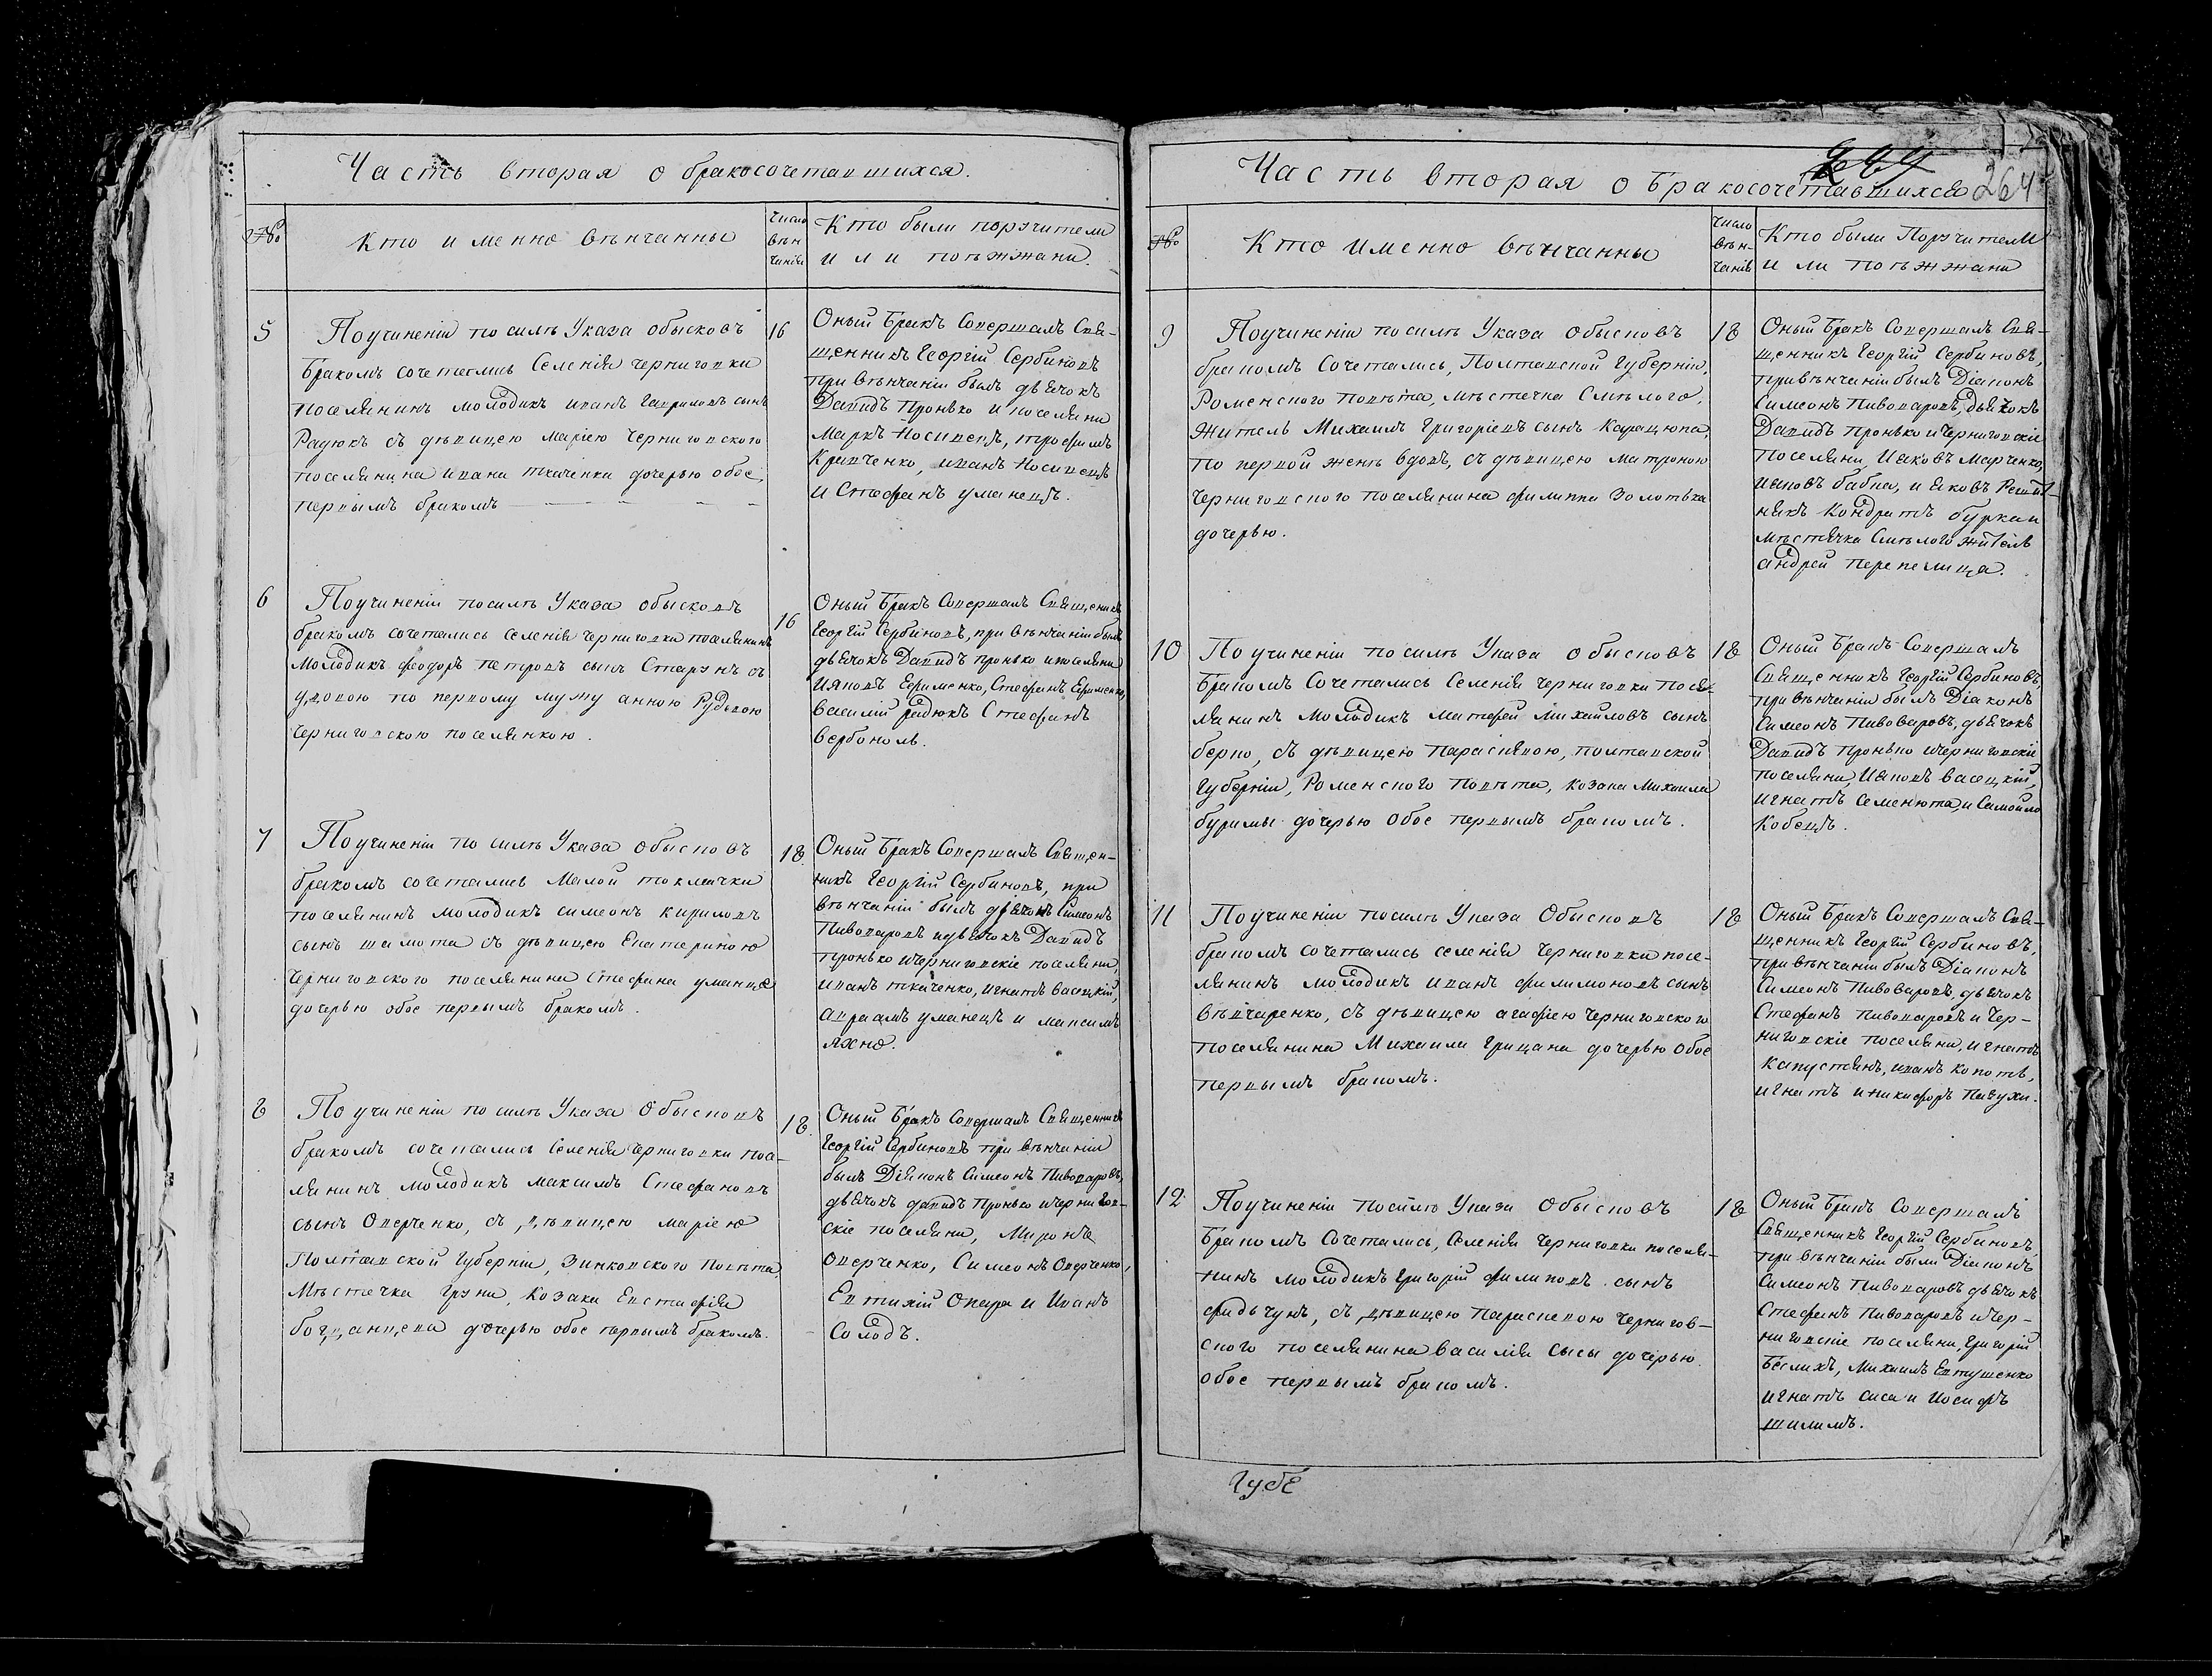 Часть вторая о бракосочетавшихся.
№
Кто именно вѣнчанны
Число
вѣн
чанія
Кто были порзчители
или поѣжжани.
5
Поучиненіи по силѣ Указа обысковъ
бракомъ сочетались Селенія черниговки
поселянинъ молодикъ иванъ гавриловъ сынъ
Радюкъ съ дѣвицею маріею Черниговского
поселянина ивана ткаченка дочерью обое,
первымъ бракомъ
16
Оный бракъ Совершалъ Свя-
щенникъ Георгій Сербиновъ
при вѣнчаніи былъ дьячокъ
Давидъ Пронько и поселяни
Маркъ Носивецъ, трофимъ
Кравченко, иванъ Носивецъ
и Стефанъ уманецъ.
6
Поучиненіи посилѣ Указа обысковъ
бракомъ сочетались селенія черниговки поселянинъ
Молодикъ феодоръ петровъ сынъ Старзнъ съ
удовою по первому мужу анною Рудьвою
Черниговскою поселянкою.
16
Оный бракъ Совершалъ Священикъ
Георгій Сербиновъ, при вѣнчаніи былъ
дьячокъ Давидъ пронько ипоселяни
Ияковъ Ефименко, Стефанъ Ефименко,
василій радюкъ Стефанъ
вербоноль.
7
Поучиненіи по силѣ Указа обысковъ
бракомъ сочетались Малой токмачки
поселянинъ молодикъ симеонъ кириловъ
сынъ шамота съ дѣвицею Екатериною
Черниговского поселянина Стефана уманца
дочерью обое первымъ бракомъ.
18.
Оный бракъ Совершалъ Священ-
никъ Георгій Сербиновъ, при
вѣнчаніи былъ Симеонъ
Пивоваровъ идьячокъ Давидъ
пронько ичерниговскіе поселяни,
иванъ ткаченко, игнатъ васецкій,
авраамъ уманецъ и максимъ
яхно.
8
Поучиненіи по силѣ Указа обысковъ
бракомъ сочетались Селенія черниговки посе-
лянинъ молодикъ максимъ Стефановъ
сынъ Оверченко, съ дѣвицею маріею
Полтавской Губерніи, Зинковского Повѣта
Мѣстечка Грзни, козака Евстафія
богданцева дочерью обое первымъ бракомъ.
18.
Оный бракъ Совершалъ Священникъ
Георгій Сербиновъ при вѣнчаніи
былъ Діяконъ Симеонъ Пивоваровъ,
дьячокъ давидъ Пронько ичернигов-
скіе поселяни, Миронъ
Оверченко, Симеонъ Оверченко,
Евтихій Опара и Иванъ
Солодъ.
Часть вторая о бракосочетавшихся
264
№
Кто именно вѣнчанны
Число
вѣн-
чанія
Кто были Порзчители
или поѣжжани
9
Поучиненіи по силѣ Указа обысковъ
бракомъ Сочетались, Полтавской Губерніи,
Роменского повѣта, мѣстечка Смѣлого,
житель Михаилъ Григоріевъ сынъ Карацюпа,
по первой женѣ вдовъ, съ дѣвицею матроною
черниговского поселянина филиппа Золотька
дочерью.
18
Оный бракъ Совершалъ Свя-
щенникъ Георгій Сербиновъ,
привѣнчаніи былъ Діаконъ
Симеонъ Пивоваровъ, дьячокъ
Давидъ Пронько ичерниговскіе
поселяни, Иаковъ Марченко,
иаковъ бабка, и яковъ
никъ Кондратъ буркан
мѣстечка Смѣлого житель
андрей перепелица.
10
Поучиненіи по силѣ Указа обысковъ
бракомъ Сочетались Селенія черниговки посе-
лянинъ Молодикъ матфей михайловъ сынъ
берко, съ дѣвицею параскевою, полтавской
Губерніи, Роменского повѣта, козака михаила
буримы дочерью Обое первымъ бракомъ.
18
Оный бракъ Совершалъ
Священникъ Георгій Сербиновъ,
привѣнчаніи былъ Діаконъ
Симеонъ Пивоваровъ, дьячокъ
Давидъ Пронько ичерниговскіе
поселяни, Ияковъ васецкій,
игнатъ семенюта, и Самойло
Кобецъ.
11
Поучиненіи посилѣ Указа Обысковъ
бракомъ сочетались селенія Черниговки посе-
лянинъ молодикъ иванъ филимоновъ сынъ
вѣвчаренко, съ дѣвицею агафіею черниговского
поселянина Михаила грицана дочерью Обое
первымъ бракомъ.
18
Оный бракъ Совершалъ Свя-
щенникъ Георгій Сербиновъ,
при вѣнчаніи былъ Діаконъ
Симеонъ Пивоваровъ, дьячокъ
Стефанъ Пивоваровъ и Чер-
ниговскіе поселяни, игнатъ
капустянъ, иванъ копоть,
игнатъ и никифоръ пивухи.
12.
Поучиненіи посилѣ Указа Обысковъ
Бракомъ Сочетались, Селенія Черниговки поселя-
нинъ молодикъ Григорій филиповъ сынъ
фидьчунъ, съ дѣвицею Параскевою Чернигов-
ского поселянина василія сысы дочерью.
обое первымъ бракомъ.
18
Оный бракъ Совершалъ
Священникъ Георгій Сербиновъ,
при вѣнчаніи были Діаконъ
Симеонъ Пивоваровъ дьячокъ
Стефанъ Пивоваровъ ичер-
ниговскіе поселяни, Григорій
Бѣликъ, Михаилъ Евтушенко
игнатъ сиса и иосифъ
шилимъ.
Губе